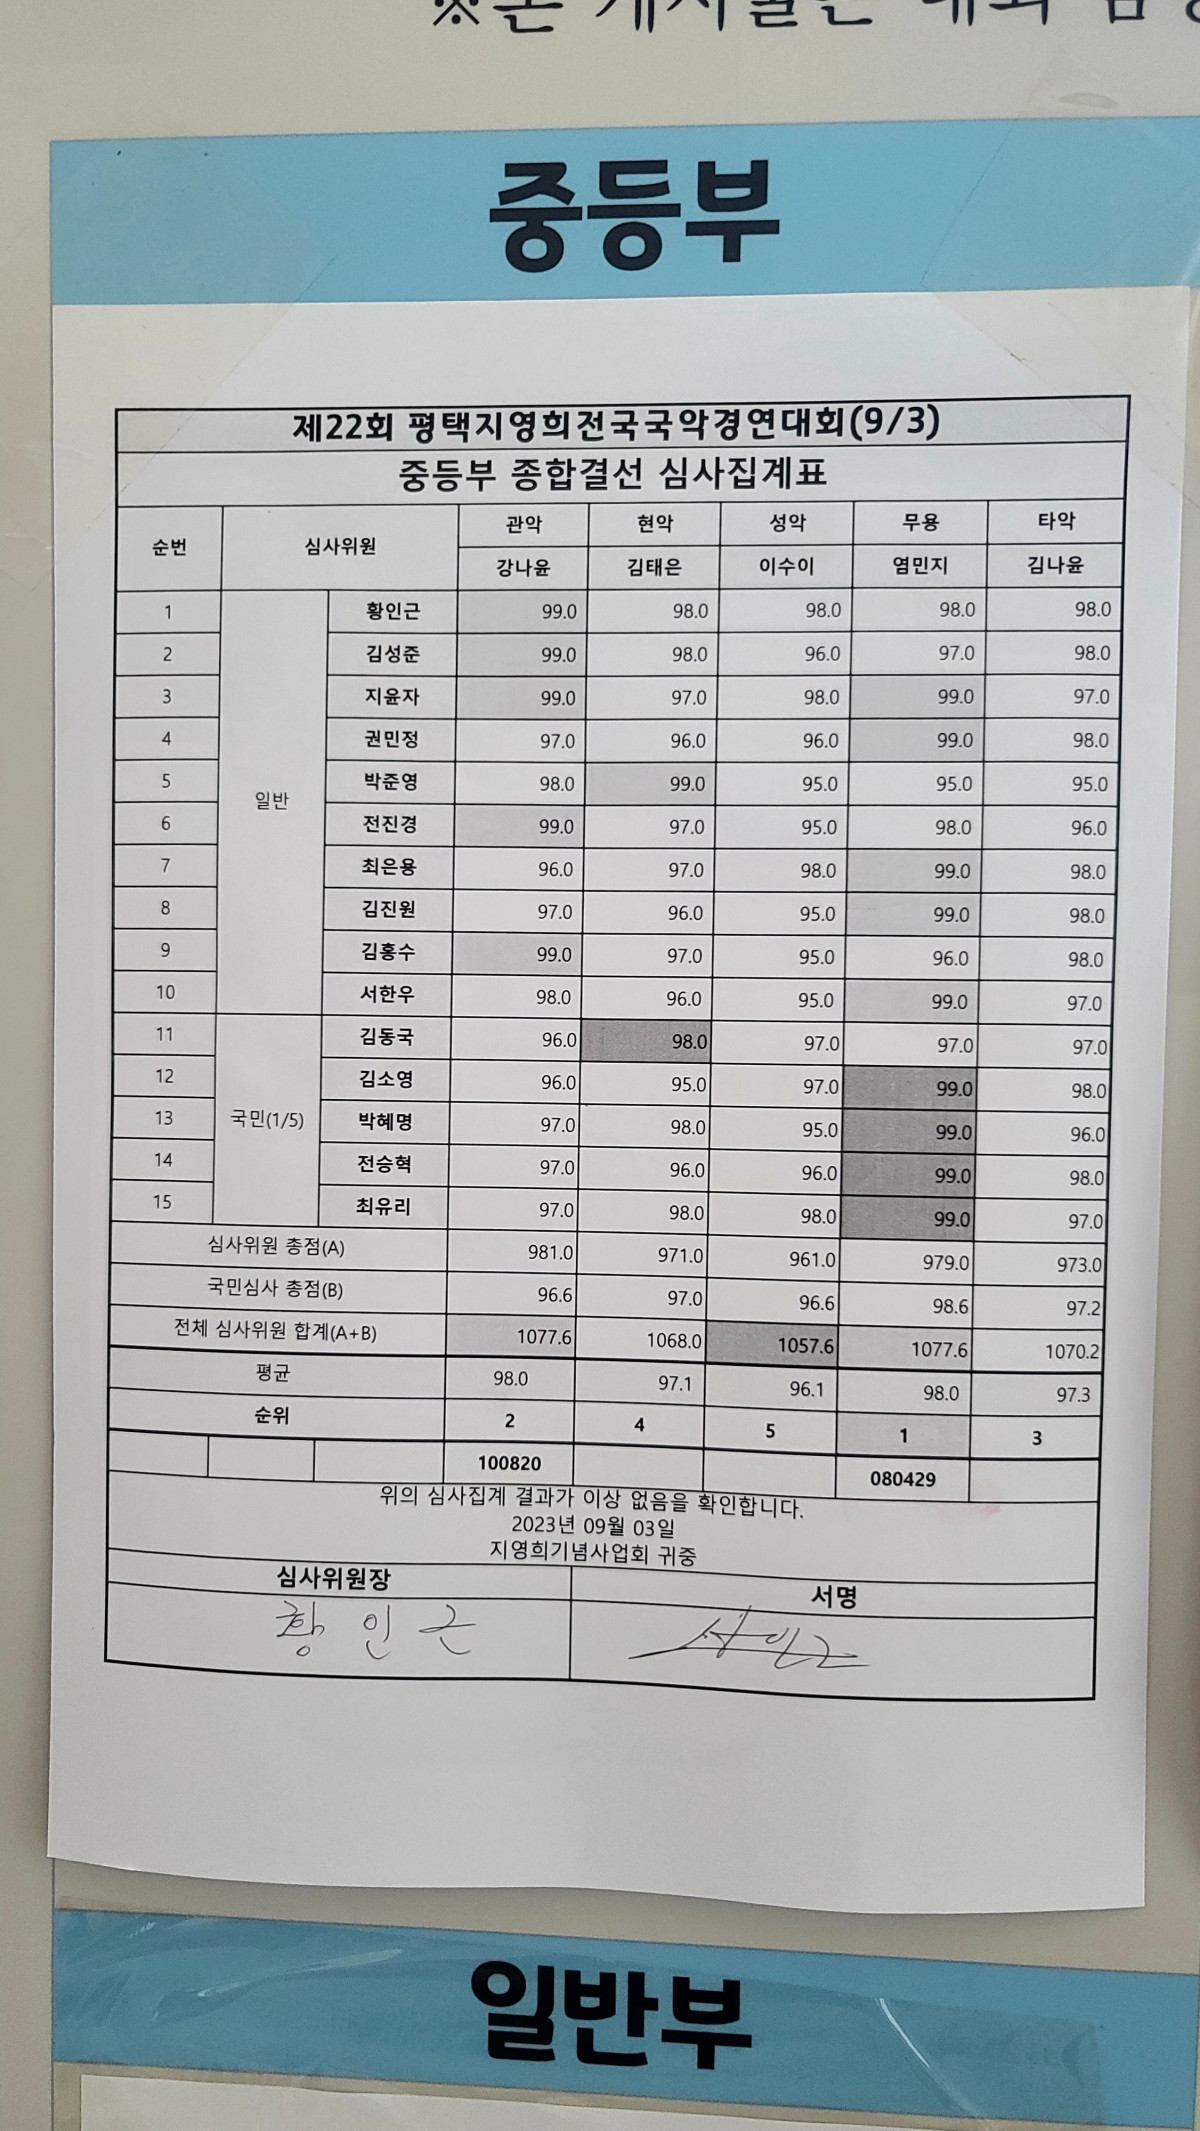 중등부
제22회 평택지영희전국국악경연대회(9/3)
중등부 종합결선 심사집계표
순번 심사위원 관악 현악 성악 무용 타악
강나윤 김태은 이수이 염민지 김나윤
1 일반 황인근 99.0 98.0 98.0 98.0 98.0
2 김성준 99.0 98.0 96.0 97.0 98.0
3 지윤자 99.0 97.0 98.0 99.0 97.0
4 권민정 97.0 96.0 96.0 99.0 98.0
5 박준영 98.0 99.0 95.0 95.0 95.0
6 전진경 99.0 97.0 95.0 98.0 96.0
7 최은용 96.0 97.0 98.0 99.0 98.0
8 김진원 97.0 96.0 95.0 99.0 98.0
9 김홍수 99.0 97.0 95.0 96.0 98.0
10 서한우 98.0 96.0 95.0 99.0 97.0
11 국민(1/5) 김동국 96.0 98.0 97.0 97.0 97.0
12 김소영 96.0 95.0 97.0 99.0 98.0
13 박혜명 97.0 98.0 95.0 99.0 96.0
14 전승혁 97.0 96.0 96.0 99.0 98.0
15 최유리 97.0 98.0 98.0 99.0 97.0
심사위원 총점(A) 981.0 971.0 961.0 979.0 973.0
국민심사 총점(B) 96.6 97.0 96.6 98.6 97.2
전체 심사위원 합계(A+B) 1077.6 1068.0 1057.6 1077.6 1070.2
평균 98.0 97.1 96.1 98.0 97.3
순위 2 4 5 1 3
100820 080429
위의 심사집계 결과가 이상 없음을 확인합니다.
2023년 09월 03일
지영희기념사업회 귀중
심사위원장 서명
황인근
일반부